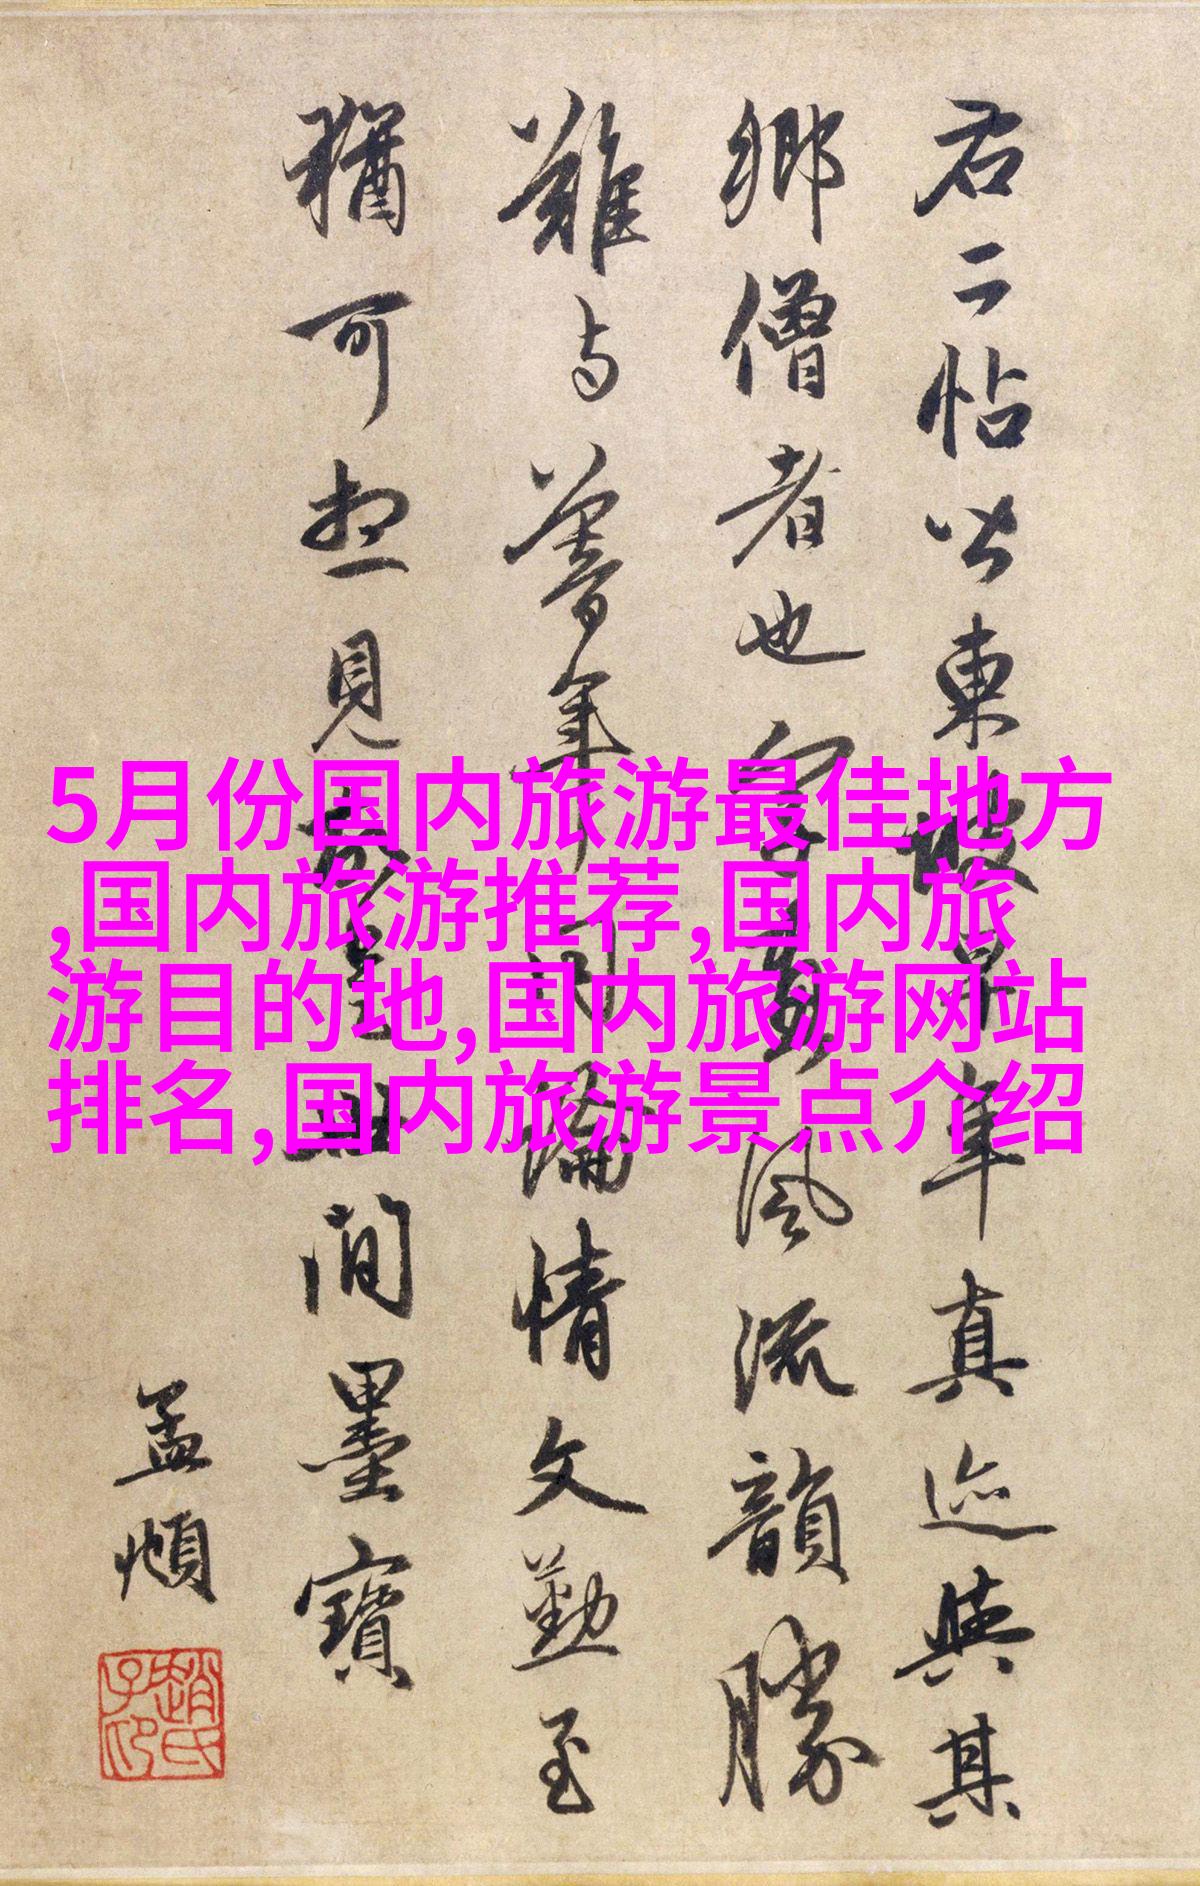 右二帖皆東坡早年真迹與其
鄉僧者也字畫風流韻勝
難与暮年同論情文勤至
猶可想見故是世間墨寶
孟頫
趙氏子昂
5月份国内旅游最佳地方
,国内旅游推荐,国内旅
游目的地,国内旅游网站
排名,国内旅游景点介绍